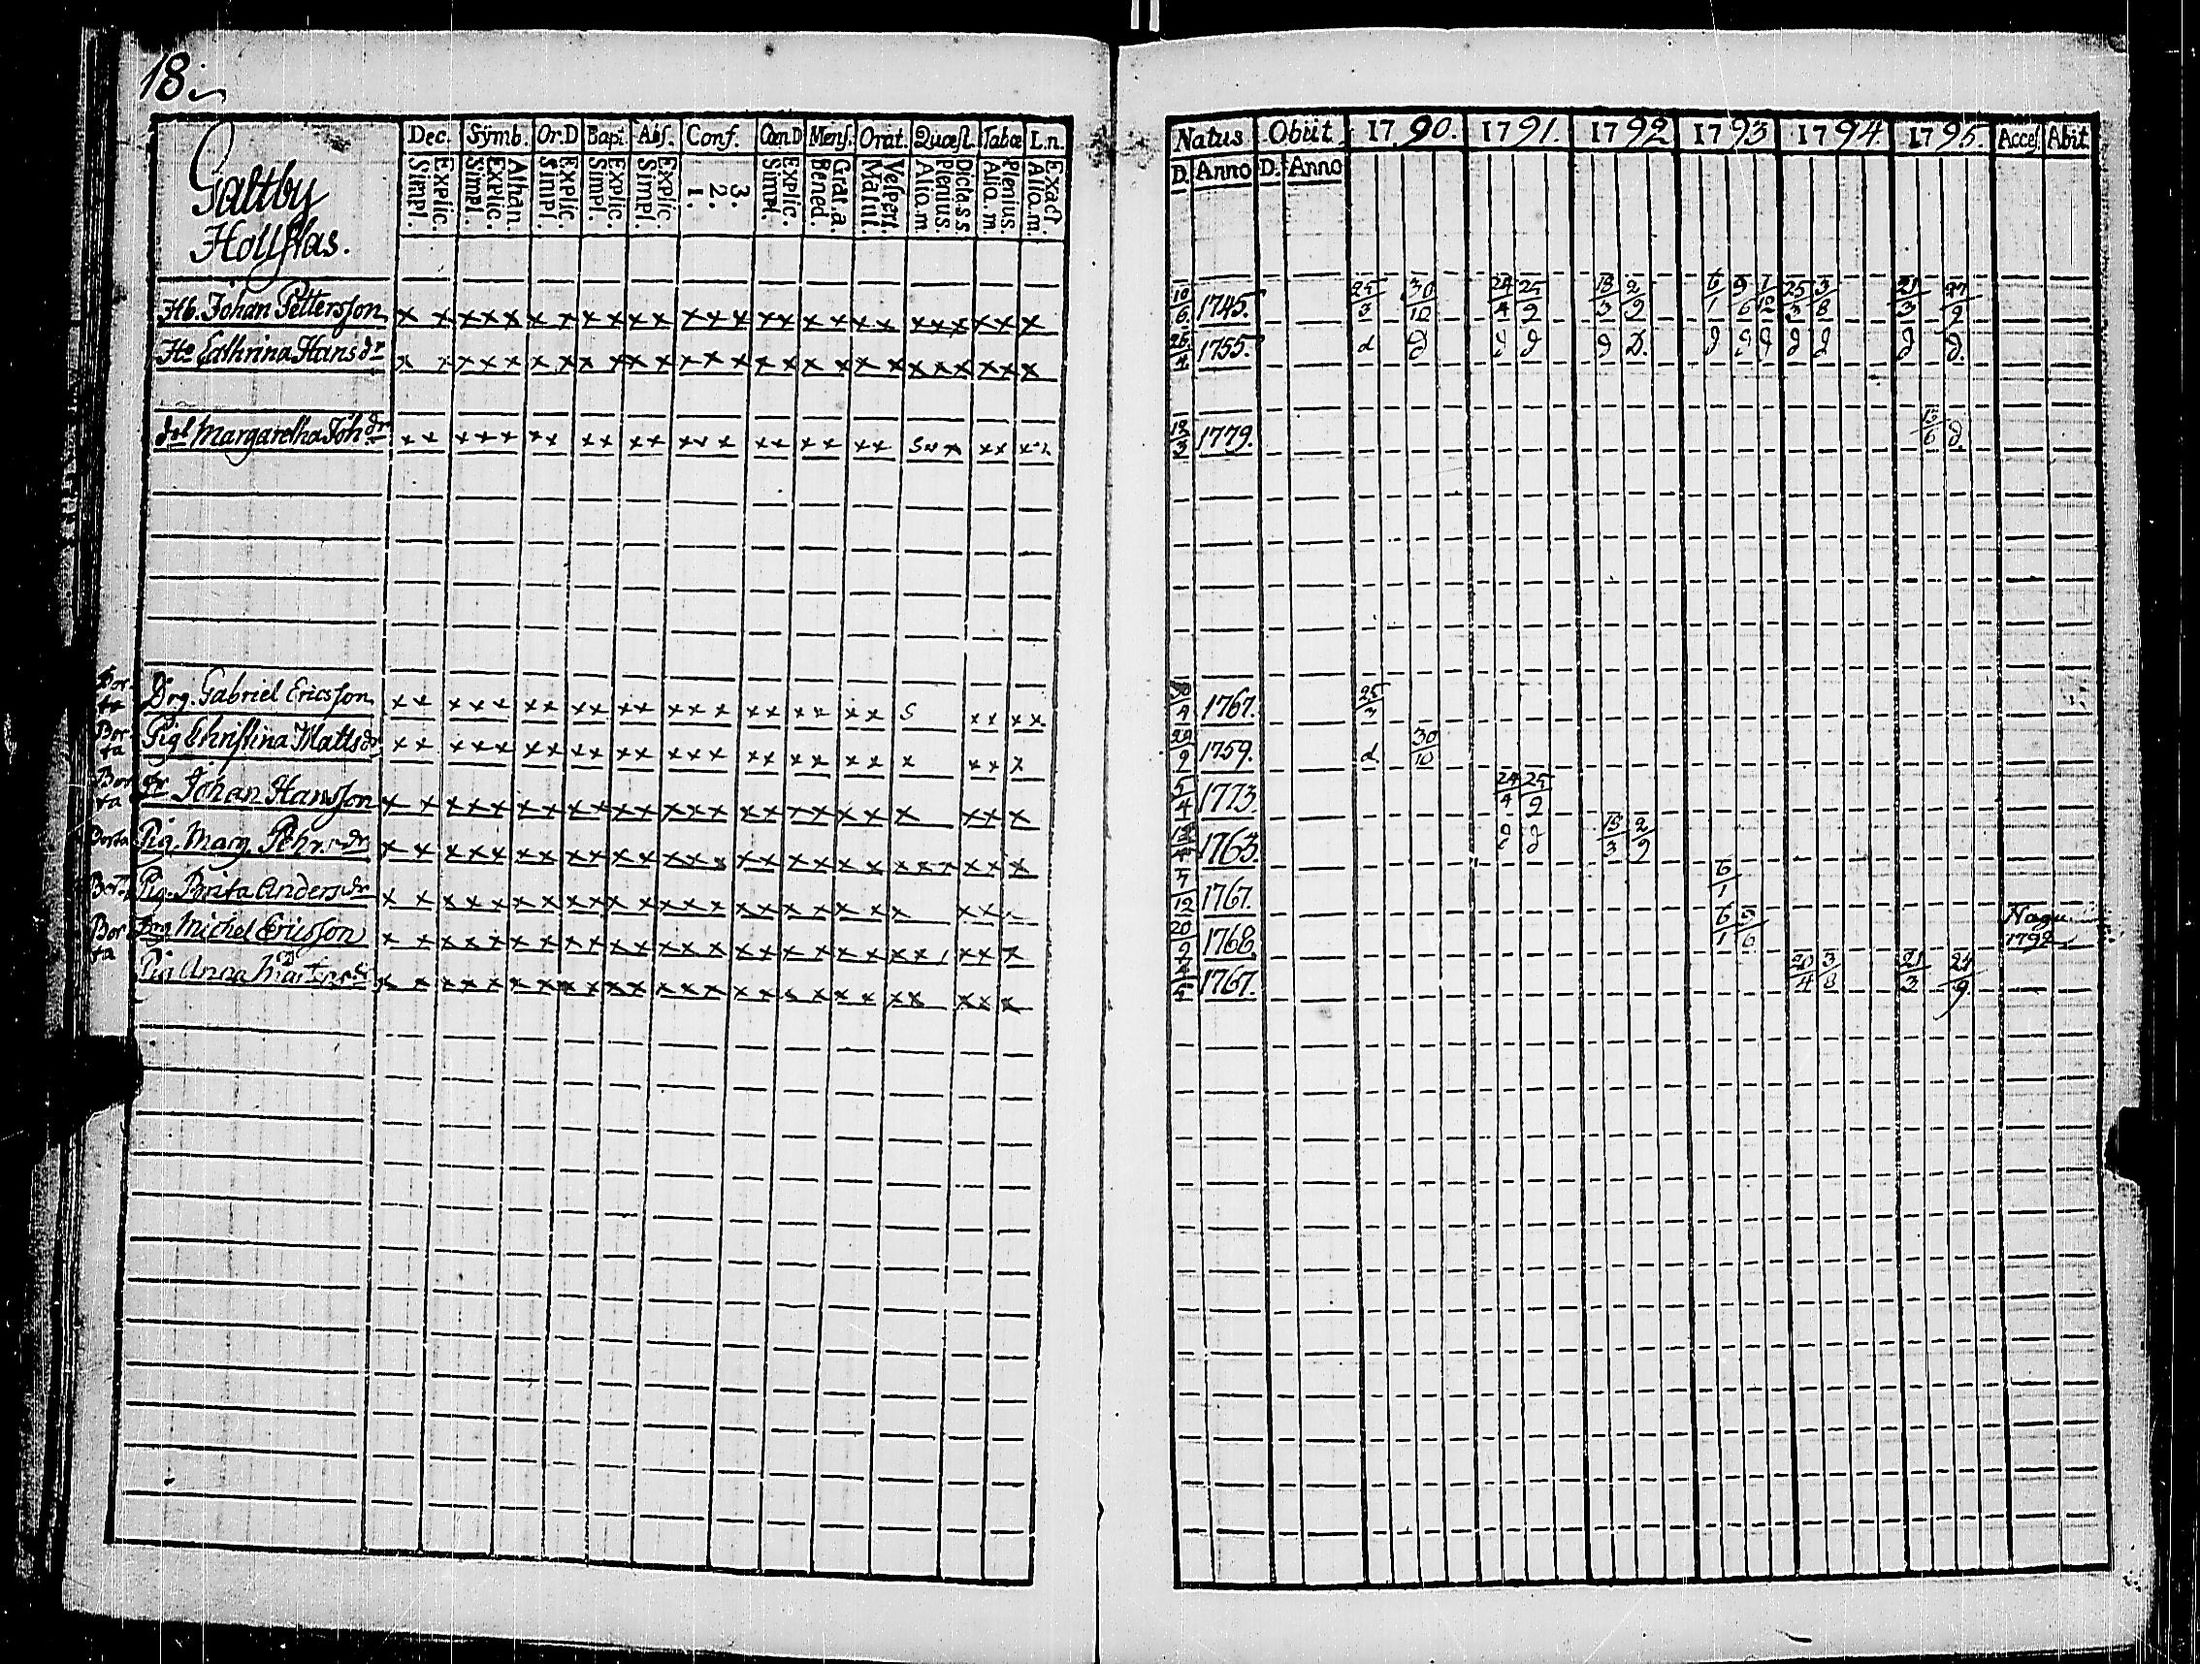 18.
Galtby
Hollsfas.
Dec. Sÿmb. Or.D Bapt. Abs. Conf. Cœn.D Mens. Orat. Quæst. Tabæ L.n.
Explic. Simpl. Athan. Explic. Simpl. Explic. Simpl. Explic. Simpl. Explic. Simpl. 3. 2. 1. Explic. Simpl. Grat.a. Bened. Vespert. Matut. Dicta.s.s. Plenius. Alio.m Plenius Alio.m Exact. Alio.m.
Natus Obiit 1790. 1791. 1792 1793 1794. 1795. Acces. Abit
D. Anno D. Anno
Hb. Johan Pettersson x x x x x x x x x x x x x x x x x x x x x x x x x x 10/6 1745. 25/3 30/10 24/4 25/9 18/3 2/9 6/1 9/6 1/12 25/3 3/8 21/3 27/9
Ha Cathrina Hansdr x x x x x x x x x x x x x x x x x x x x x x x x x x 1755. d d d d d D. d d d d d d d.
dr Margaretha Johdr x x x x x x x x x x x x x x x x x x x x x x 1779. d.
Borta Drg. Gabriel Ericsson x x x x x x x x x x x x x x x x x x x x s x x x x 1767. 25/3
Borta Pig Christina Mattsdr x x x x x x x x x x x x x x x x x x x x x x x x 29/9 1759. d 30/10
Borta dr Johan Hansson x x x x x x x x x x x x x x x x x x x x x x x x 5/4 1773. 24/4 25/9
Borta Pig. Marg x x x x x x x x x x x x x x x x x x x x x x x x x x 1763. d d 18/3 2/9
Bort Pig. Brita Andersdr x x x x x x x x x x x x x x x x x x x x x x x 7/12 1767. 6/1
Borta Drg Michel Ericsson x x x x x x x x x x x x x x x x x x x x x x x x x 20/9 1768. 6/1 9/6 Nagu 1792
Pig Anna x x x x x x x x x x x x x x x x x x x x x x x x x 1767. 20/4 3/8 21/3 27/9